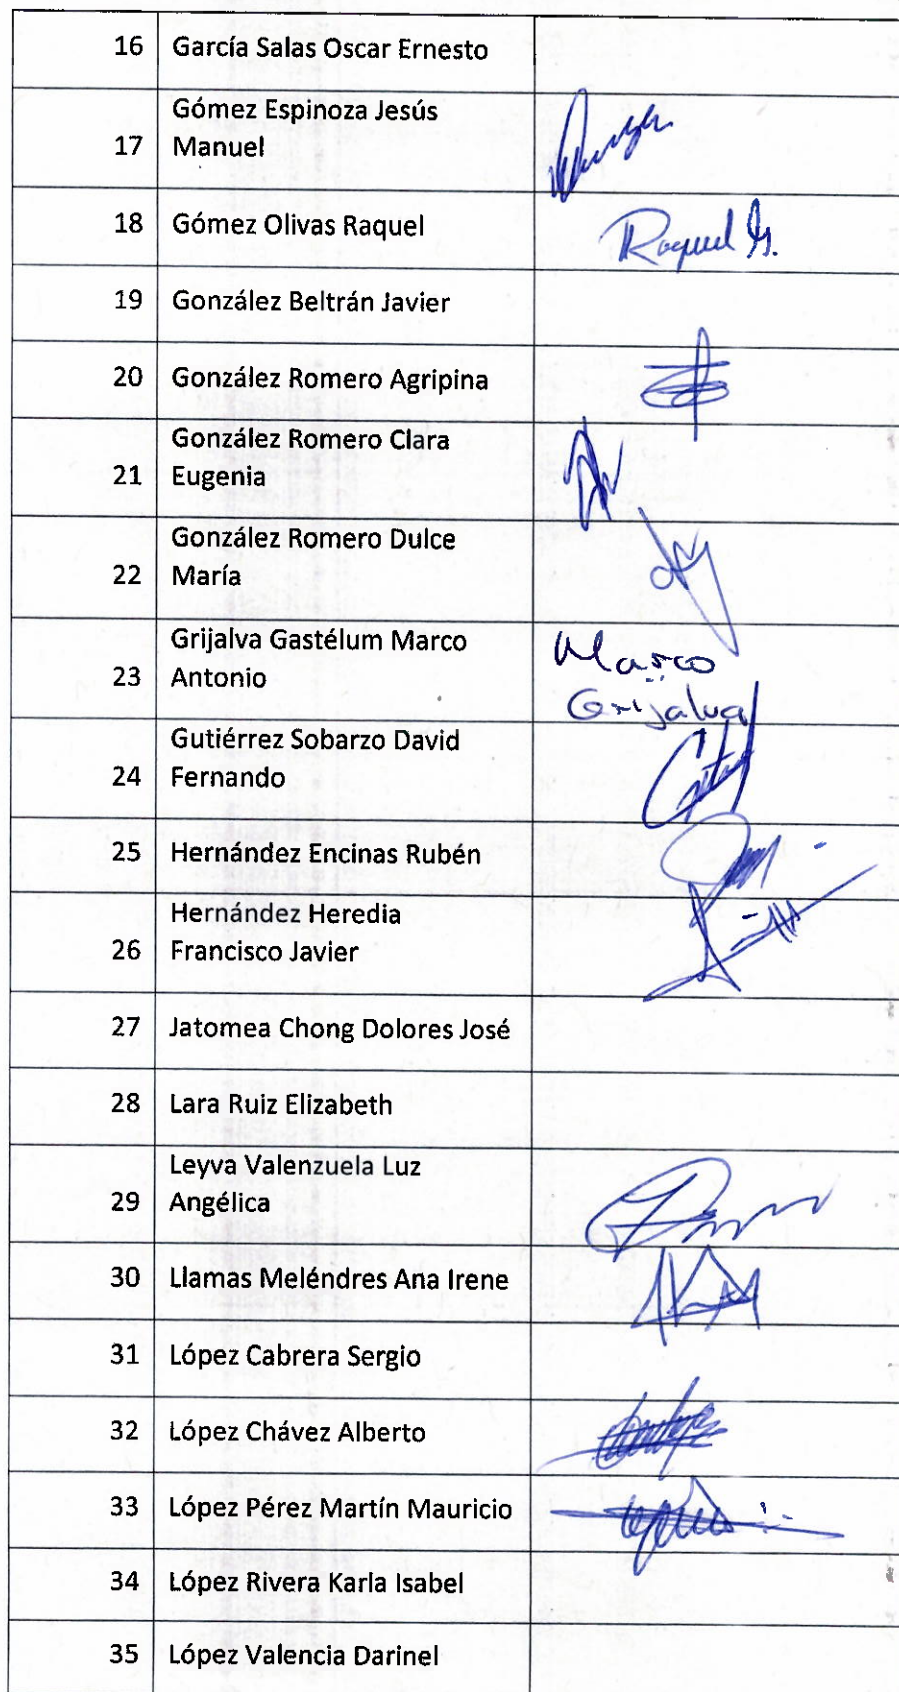 16 García Salas Oscar Ernesto
Gómez Espinoza Jesús
17 Manuel
18 Gómez Olivas Raquel Raquel G.
19 González Beltrán Javier
20 González Romero Agripina
González Romero Clara
21 Eugenia
González Romero Dulce
22 María
Grijalva Gastélum Marco Marco
23 Antonio
Grijalva
Gutiérrez Sobarzo David
24 Fernando
25 Hernández Encinas Rubén
Hernández Heredia
26 Francisco Javier
27 Jatomea Chong Dolores José
28 Lara Ruiz Elizabeth
Leyva Valenzuela Luz
29 Angélica
30 Llamas Meléndres Ana Irene
31 López Cabrera Sergio
32 López Chávez Alberto
33 López Pérez Martín Mauricio
34 López Rivera Karla Isabel
35 López Valencia Darinel